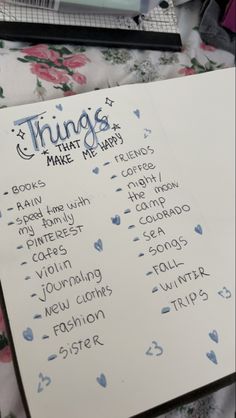 Things
THAT
MAKE ME HAPPY
- BOOKS
- RAIN
- speed time with
my family
- PINTEREST
- cafes
- violin
- journaling
- NEW clothes
- Fashion
- SISTER
- FRIENDS
- coffee
- night/
the moon
- camp
- COLORADO
- SEA
- songs
- FALL
- WINTER
- TRIPS